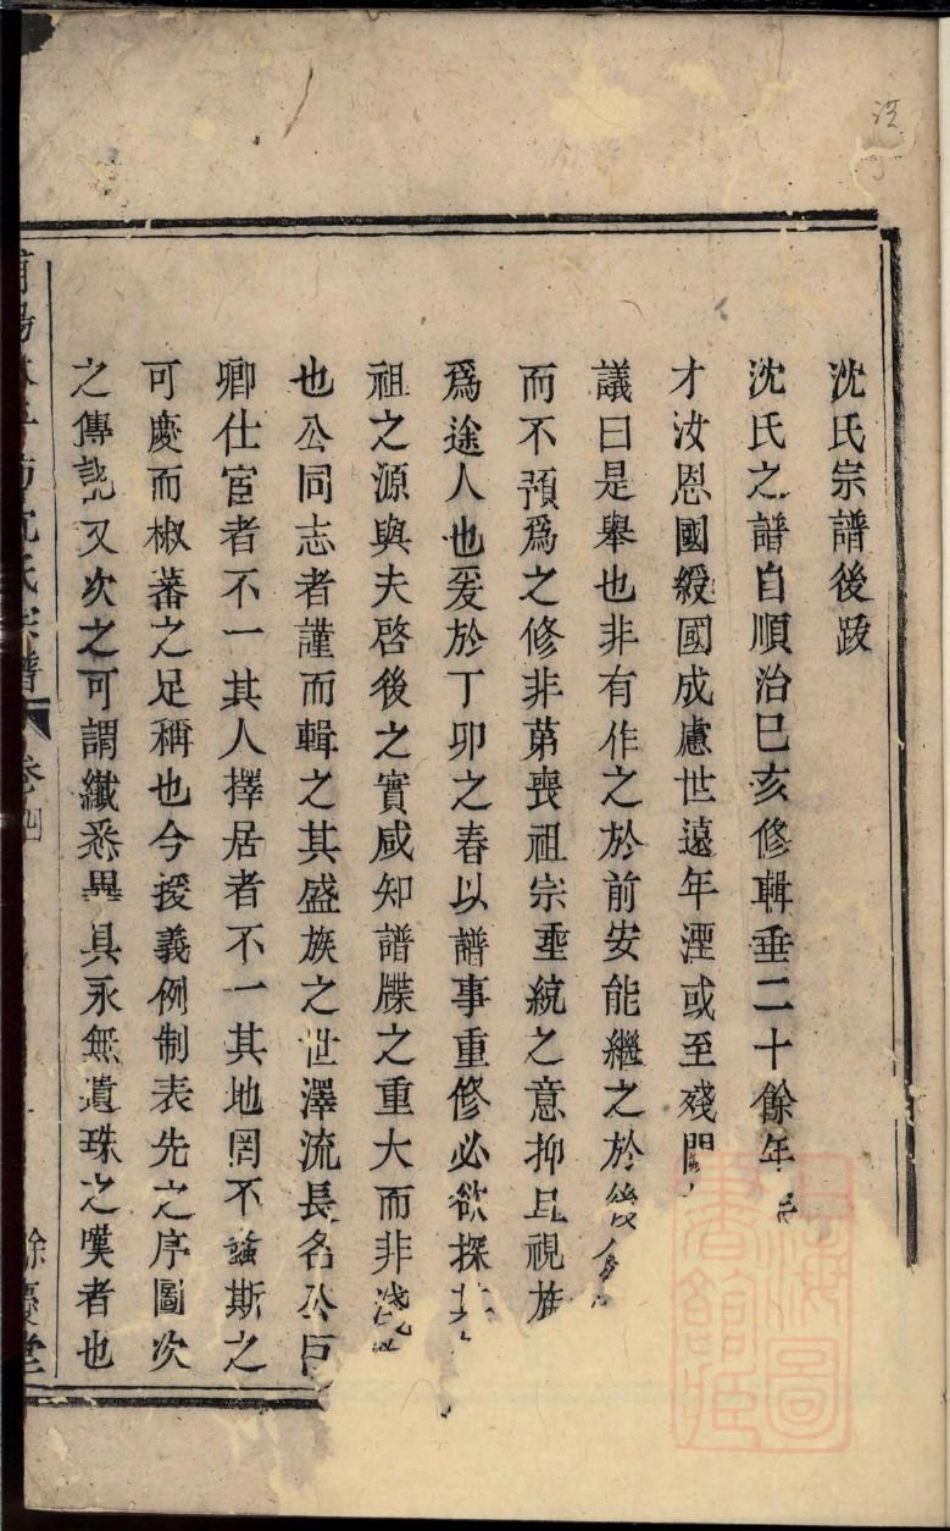 沈氏宗譜後跋
沈氏之譜自順治巳亥修輯垂二十餘年
才汝恩國綬國成慮世遠年湮或至殘
議曰是舉也非有作之於前安能繼之於後
而不預爲之修非苐喪祖宗垂統之意抑且視族
爲途人也爰於丁卯之春以譜事重修必欲探
祖之源與夫啓後之實咸知譜牒之重大而非淺
也公同志者謹而輯之其盛族之世澤流長名公巨
卿仕宦者不一其人擇居者不一其地罔不螽斯之
可慶而椒蕃之足稱也今援義例制表先之序圖次
之傳誌又次之可謂纖悉畢具永無遺珠之嘆者也
沈氏宗譜
卷四
餘慶堂